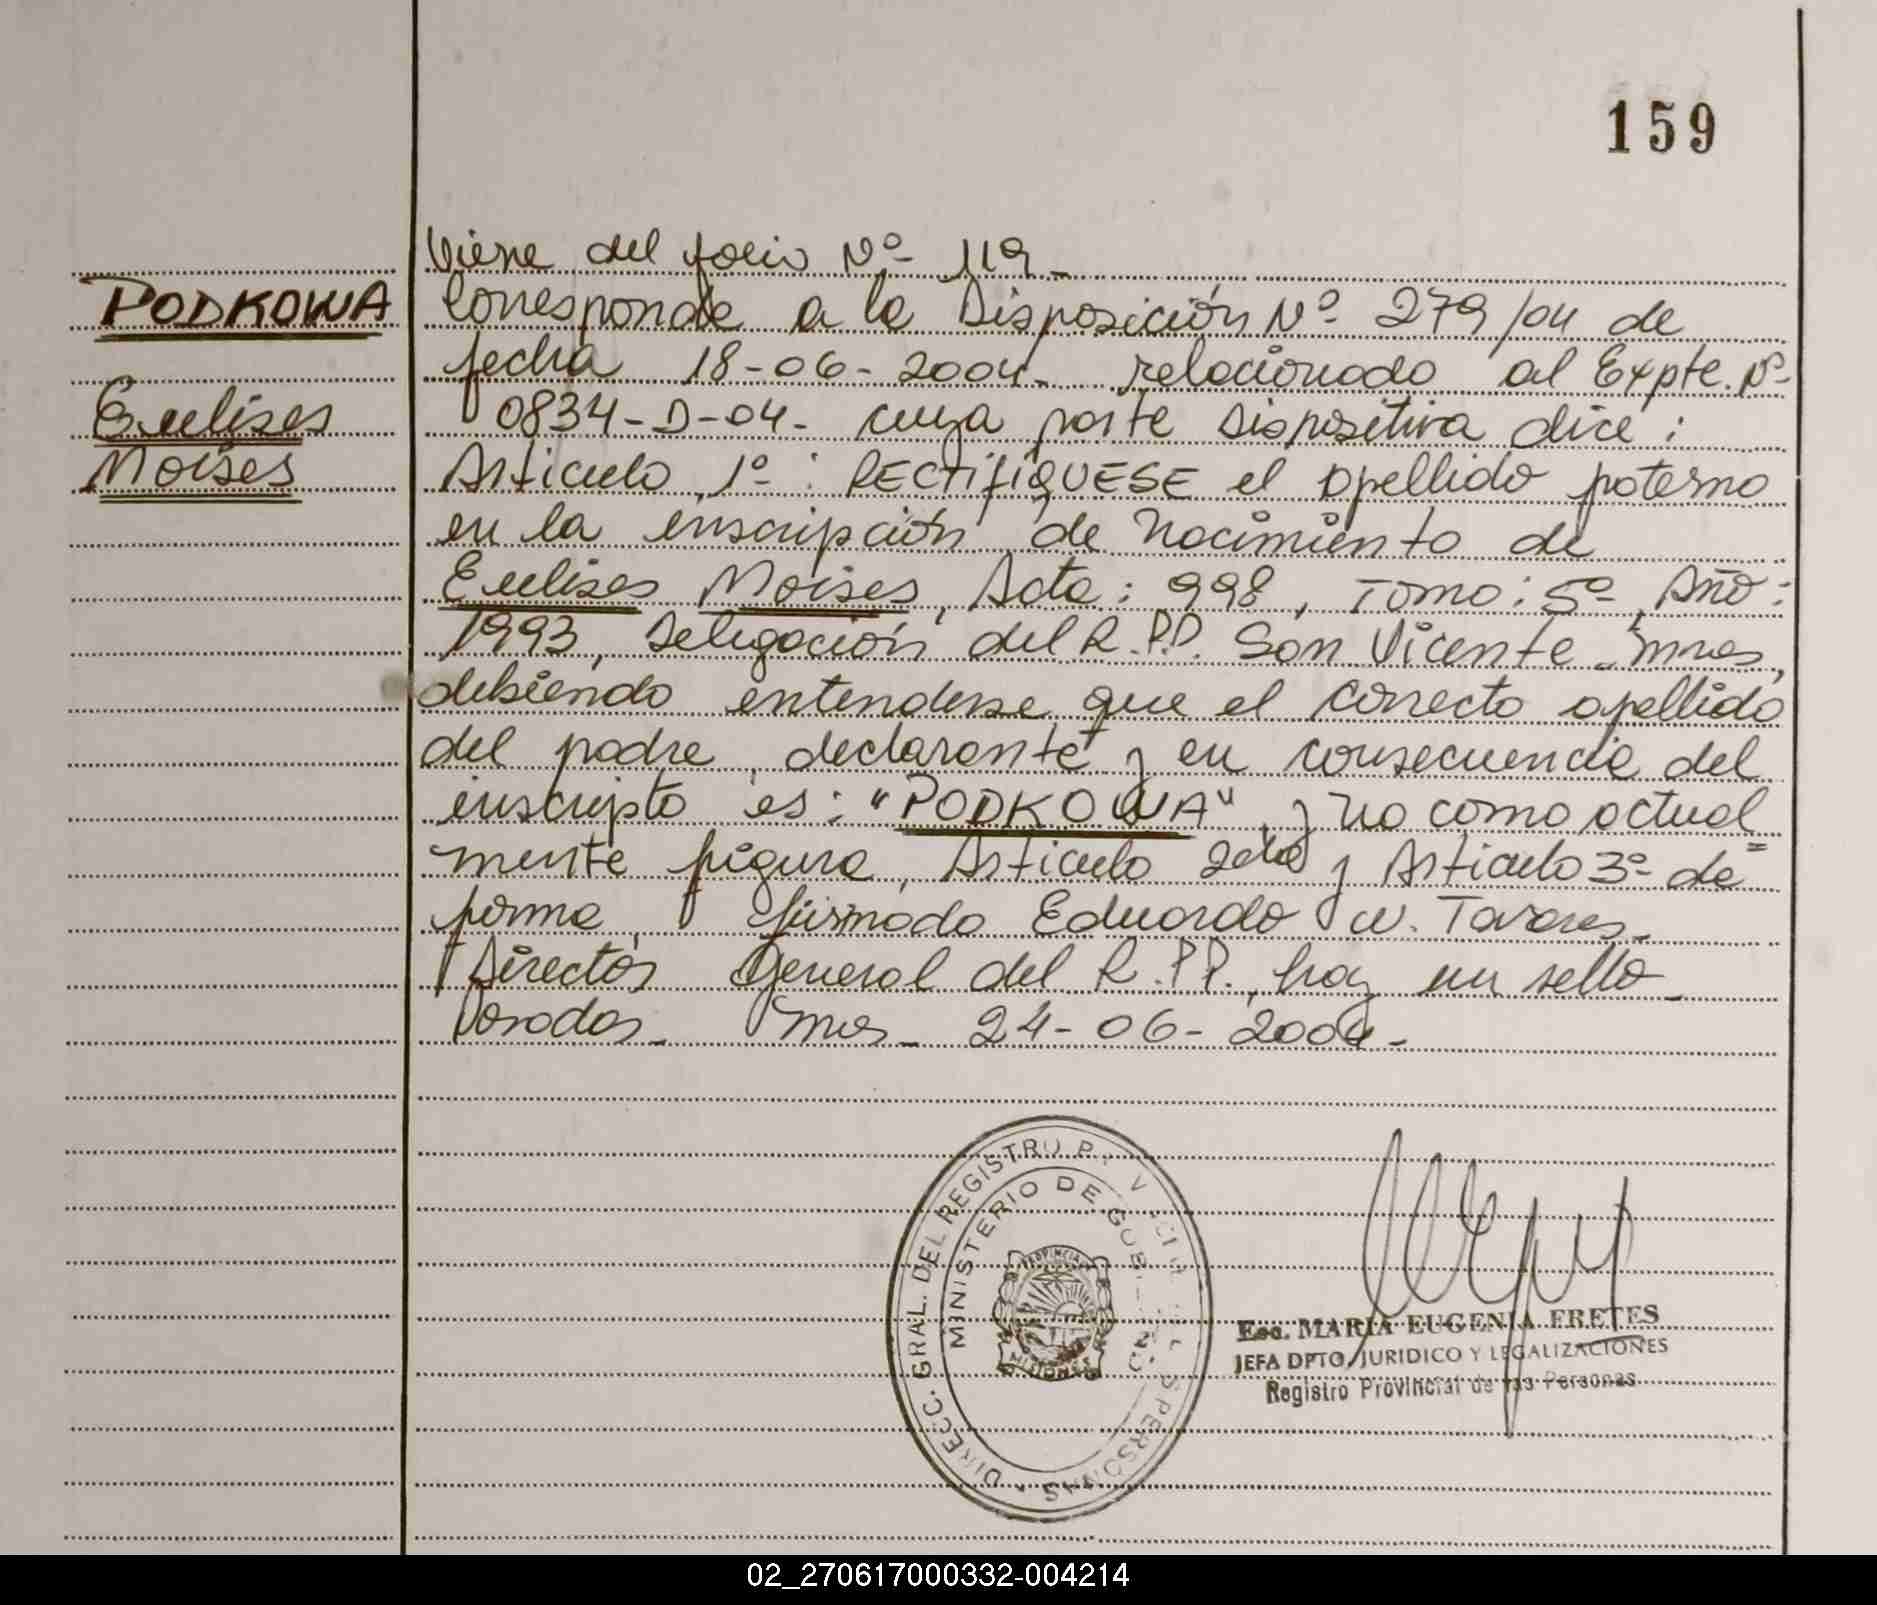 159
Viene del folio Nº 119-
PODKOWA
Corresponde a la Disposición Nº 279/04 de
fecha 18-06-2004- relacionado al Expte. Nº
Eulises
0834-D-04- cuya parte dispositiva dice:
Moises
Articulo 1º: RECTIFIQUESE el apellido paterno
en la inscripción de Nacimiento de
Eulises Moises, Acta: 998, Tomo: 5º, Año:
1993, Delegación del R.P.P. San Vicente - Mnes,
debiendo entenderse que el correcto apellido
del padre, declarante y en consecuencia del
inscripto es: "PODKOWA", y no como actual=
mente figura, Articulo 2do y Articulo 3º de
forma, firmado Eduardo W. Tavares-
Director General del R.P.P., hay un sello-
Posadas- Mnes- 24-06-2004-
DIRECC. GRAL. DEL REGISTRO PERSONAS
MINISTERIO DE
PROVINCIA
MISIONES
Esc. MARIA EUGENIA FRETES
JEFA DPTO. JURIDICO Y LEGALIZACIONES
Registro Provincial de las Personas
02_270617000332-004214